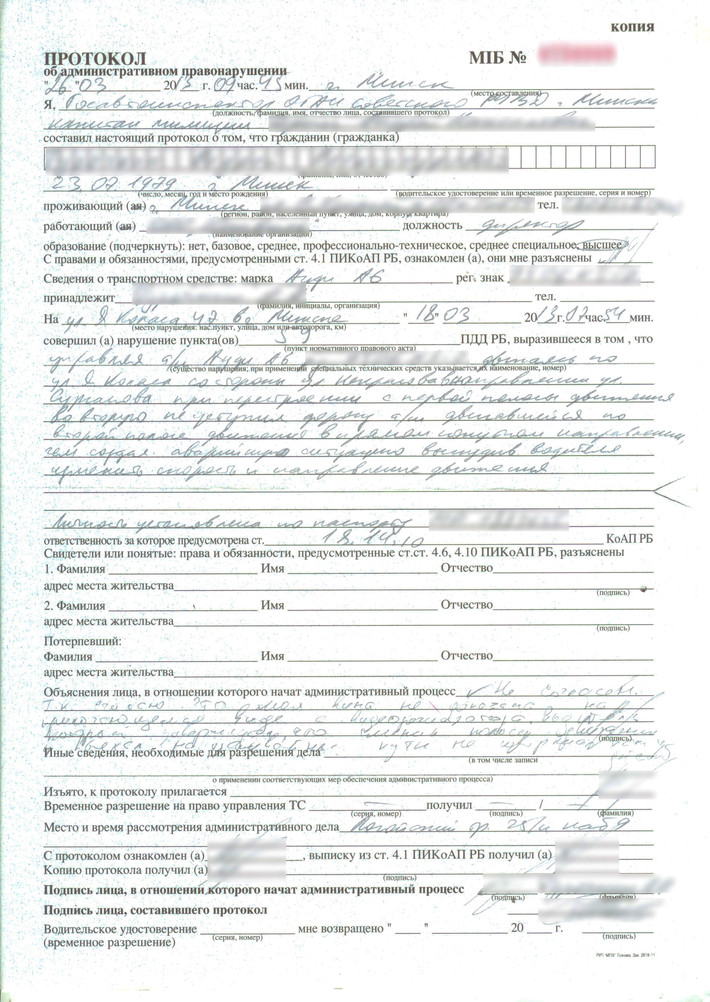 копия
ПРОТОКОЛ МІБ №
об административном правонарушении
"26" 03 2013 г. 09 час. 45 мин. г. Минск
(место составления)
Я, Госавтоинспектор ОГАИ Советского РУВД г. Минска
(должность, фамилия, имя, отчество лица, составившего протокол)
капитан милиции
составил настоящий протокол о том, что гражданин (гражданка)
23.07.1979 г. Минск
(число, месяц, год и место рождения) (водительское удостоверение или временное разрешение, серия и номер)
проживающий (ая) г. Минск тел.
(регион, район, населенный пункт, улица, дом, корпус, квартира)
работающий (ая) должность директор
(наименование организации)
образование (подчеркнуть): нет, базовое, среднее, профессионально-техническое, среднее специальное, высшее
С правами и обязанностями, предусмотренными ст. 4.1 ПИКоАП РБ, ознакомлен (а), они мне разъяснены
Сведения о транспортном средстве: марка Ауди А6 рег. знак
принадлежит тел.
(фамилия, инициалы, организация)
На ул. Я. Коласа 47 в г. Минске "18" 03 2013 г. 07 час. 54 мин.
(место нарушения: нас.пункт, улица, дом или автодорога, км)
совершил (а) нарушение пункта(ов) 59 ПДД РБ, выразившееся в том , что
(пункт нормативного правового акта)
управляя а/м Ауди А6 двигаясь по
(существо нарушения; при применении специальных технических средств указывается их наименование, номер)
ул. Я. Коласа со стороны ул. Некрасова в направлении ул.
Сурганова при перестроении с первой полосы движения
во вторую не уступил дорогу а/м двигавшейся по
второй полосе движения в прямом попутном направлении,
чем создал аварийную ситуацию вынудив водителя
изменить скорость и направление движения
Личность установлена по паспорту
ответственность за которое предусмотрена ст. 18.14.10 КоАП РБ
Свидетели или понятые: права и обязанности, предусмотренные ст.ст. 4.6, 4.10 ПИКоАП РБ, разъяснены
1. Фамилия Имя Отчество
адрес места жительства
(подпись)
2. Фамилия Имя Отчество
адрес места жительства
(подпись)
Потерпевший:
Фамилия Имя Отчество
адрес места жительства
Объяснения лица, в отношении которого начат административный процесс Не согласен.
моя вина не доказана на
виде с видеорегистратора,
(подпись)
Иные сведения, необходимые для разрешения дела
(в том числе записи
о применении соответствующих мер обеспечения административного процесса)
Изъято, к протоколу прилагается
Временное разрешение на право управления ТС получил /
(серия, номер) (подпись) (фамилия)
Место и время рассмотрения административного дела
С протоколом ознакомлен (а) , выписку из ст. 4.1 ПИКоАП РБ получил (а)
Копию протокола получил (а)
(подпись)
Подпись лица, в отношении которого начат административный процесс
(подпись)
Подпись лица, составившего протокол
Водительское удостоверение мне возвращено " " 20 г.
(временное разрешение) (серия, номер) (подпись)